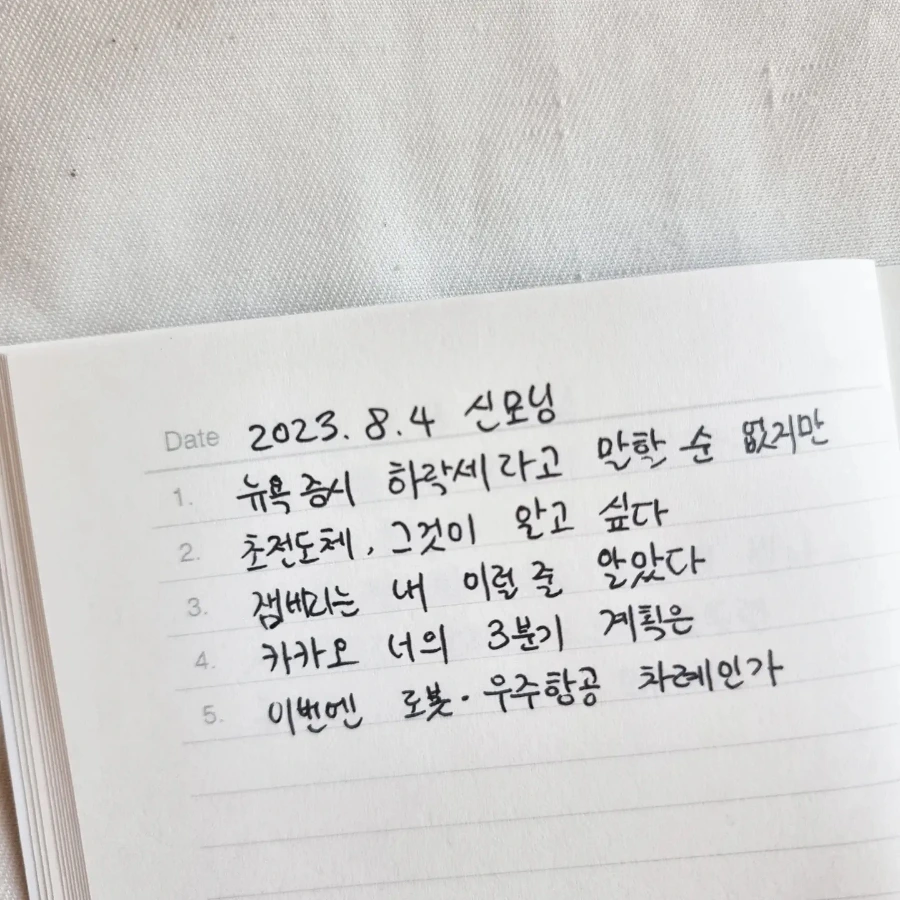 Date 2023. 8. 4 신모닝
1. 뉴욕 증시 하락세라고 말할 순 없지만
2. 초전도체, 그것이 알고 싶다
3. 잼버리는 내 이럴 줄 알았다
4. 카카오 너의 3분기 계획은
5. 이번엔 로봇·우주항공 차례인가